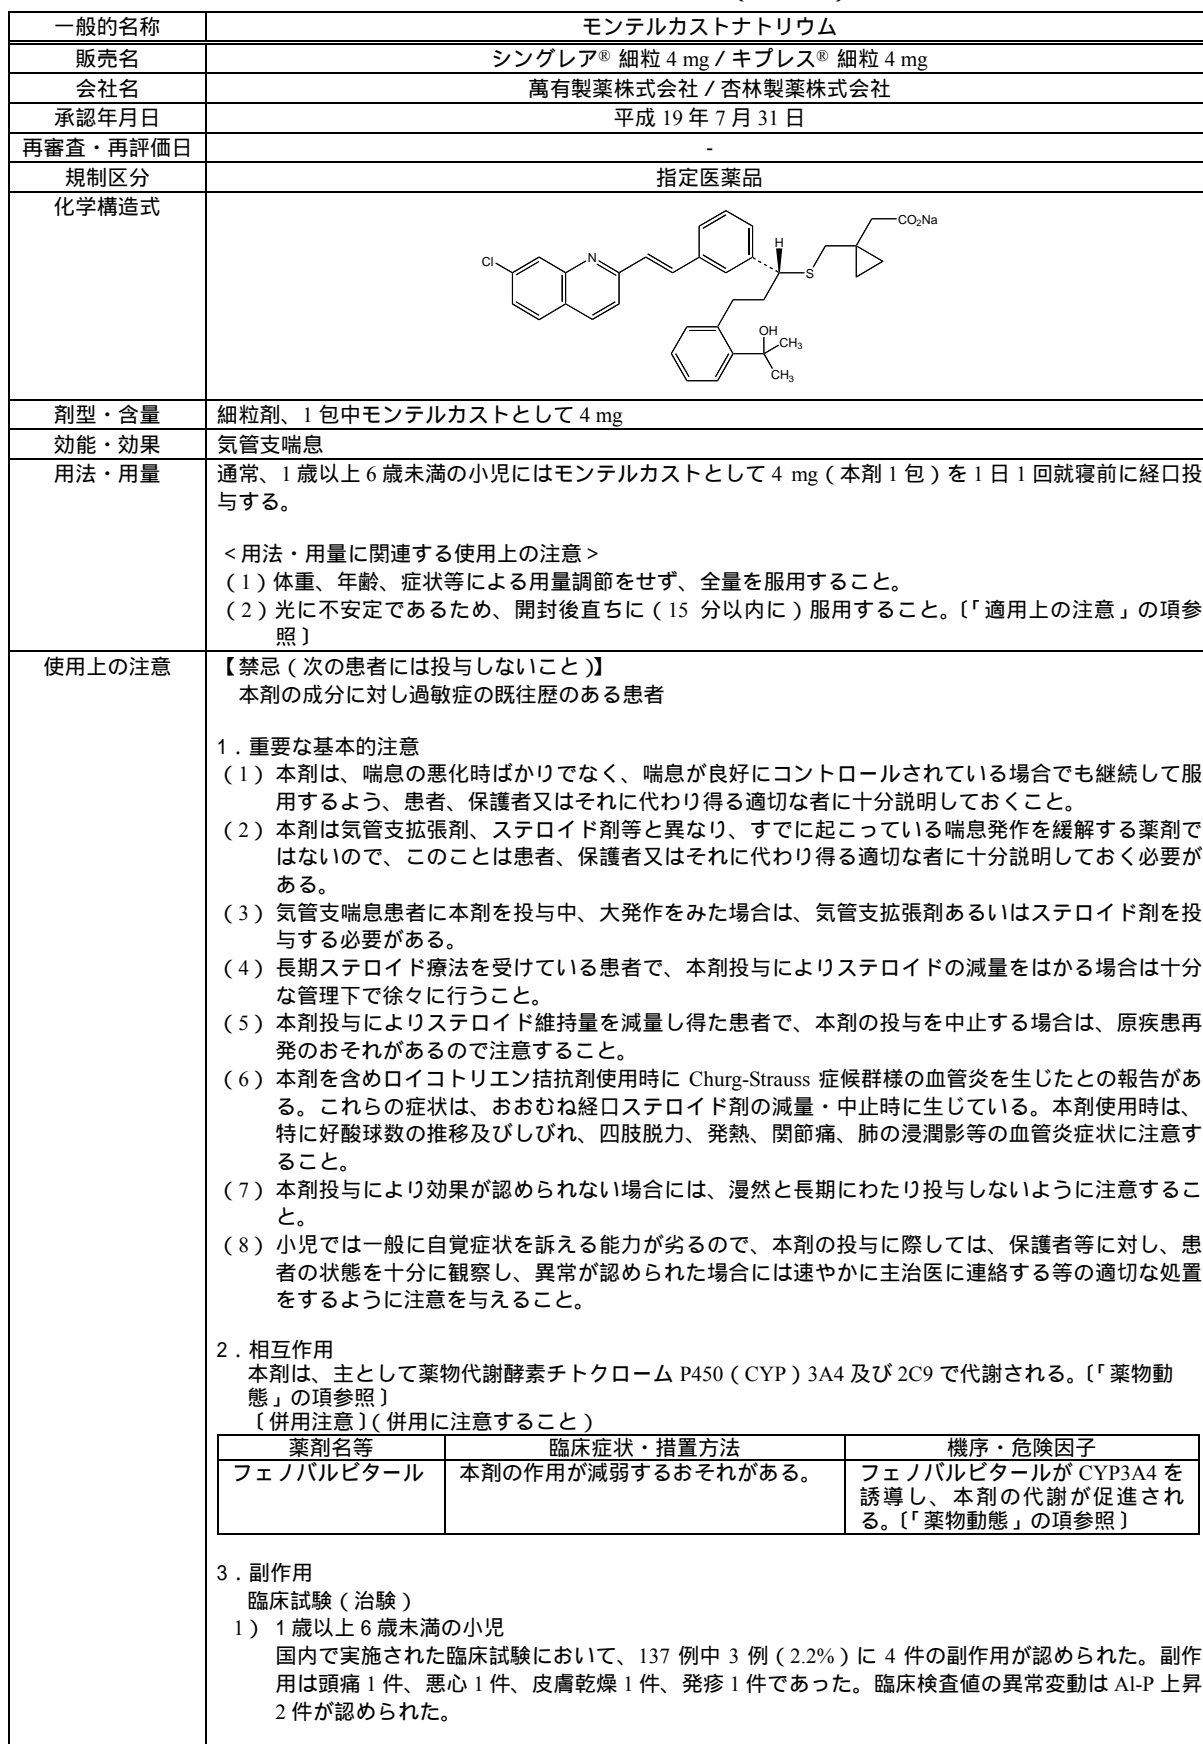 一般的名称 モンテルカストナトリウム
販売名 シングレア® 細粒 4 mg / キプレス® 細粒 4 mg
会社名 萬有製薬株式会社 / 杏林製薬株式会社
承認年月日 平成 19 年 7 月 31 日
再審査・再評価日 -
規制区分 指定医薬品
化学構造式
CO₂Na
H
Cl N S
OH
CH₃
CH₃
剤型・含量 細粒剤、1 包中モンテルカストとして 4 mg
効能・効果 気管支喘息
用法・用量 通常、1 歳以上 6 歳未満の小児にはモンテルカストとして 4 mg(本剤 1 包)を 1 日 1 回就寝前に経口投
与する。
<用法・用量に関連する使用上の注意>
(1)体重、年齢、症状等による用量調節をせず、全量を服用すること。
(2)光に不安定であるため、開封後直ちに(15 分以内に)服用すること。〔「適用上の注意」の項参
照〕
使用上の注意 【禁忌(次の患者には投与しないこと)】
本剤の成分に対し過敏症の既往歴のある患者
1.重要な基本的注意
(1)本剤は、喘息の悪化時ばかりでなく、喘息が良好にコントロールされている場合でも継続して服
用するよう、患者、保護者又はそれに代わり得る適切な者に十分説明しておくこと。
(2)本剤は気管支拡張剤、ステロイド剤等と異なり、すでに起こっている喘息発作を緩解する薬剤で
はないので、このことは患者、保護者又はそれに代わり得る適切な者に十分説明しておく必要が
ある。
(3)気管支喘息患者に本剤を投与中、大発作をみた場合は、気管支拡張剤あるいはステロイド剤を投
与する必要がある。
(4)長期ステロイド療法を受けている患者で、本剤投与によりステロイドの減量をはかる場合は十分
な管理下で徐々に行うこと。
(5)本剤投与によりステロイド維持量を減量し得た患者で、本剤の投与を中止する場合は、原疾患再
発のおそれがあるので注意すること。
(6)本剤を含めロイコトリエン拮抗剤使用時に Churg-Strauss 症候群様の血管炎を生じたとの報告があ
る。これらの症状は、おおむね経口ステロイド剤の減量・中止時に生じている。本剤使用時は、
特に好酸球数の推移及びしびれ、四肢脱力、発熱、関節痛、肺の浸潤影等の血管炎症状に注意す
ること。
(7)本剤投与により効果が認められない場合には、漫然と長期にわたり投与しないように注意するこ
と。
(8)小児では一般に自覚症状を訴える能力が劣るので、本剤の投与に際しては、保護者等に対し、患
者の状態を十分に観察し、異常が認められた場合には速やかに主治医に連絡する等の適切な処置
をするように注意を与えること。
2.相互作用
本剤は、主として薬物代謝酵素チトクローム P450(CYP)3A4 及び 2C9 で代謝される。〔「薬物動
態」の項参照〕
〔併用注意〕(併用に注意すること)
薬剤名等 臨床症状・措置方法 機序・危険因子
フェノバルビタール 本剤の作用が減弱するおそれがある。 フェノバルビタールが CYP3A4 を
誘導し、本剤の代謝が促進され
る。〔「薬物動態」の項参照〕
3.副作用
臨床試験(治験)
1) 1 歳以上 6 歳未満の小児
国内で実施された臨床試験において、137 例中 3 例(2.2%)に 4 件の副作用が認められた。副作
用は頭痛 1 件、悪心 1 件、皮膚乾燥 1 件、発疹 1 件であった。臨床検査値の異常変動は Al-P 上昇
2 件が認められた。